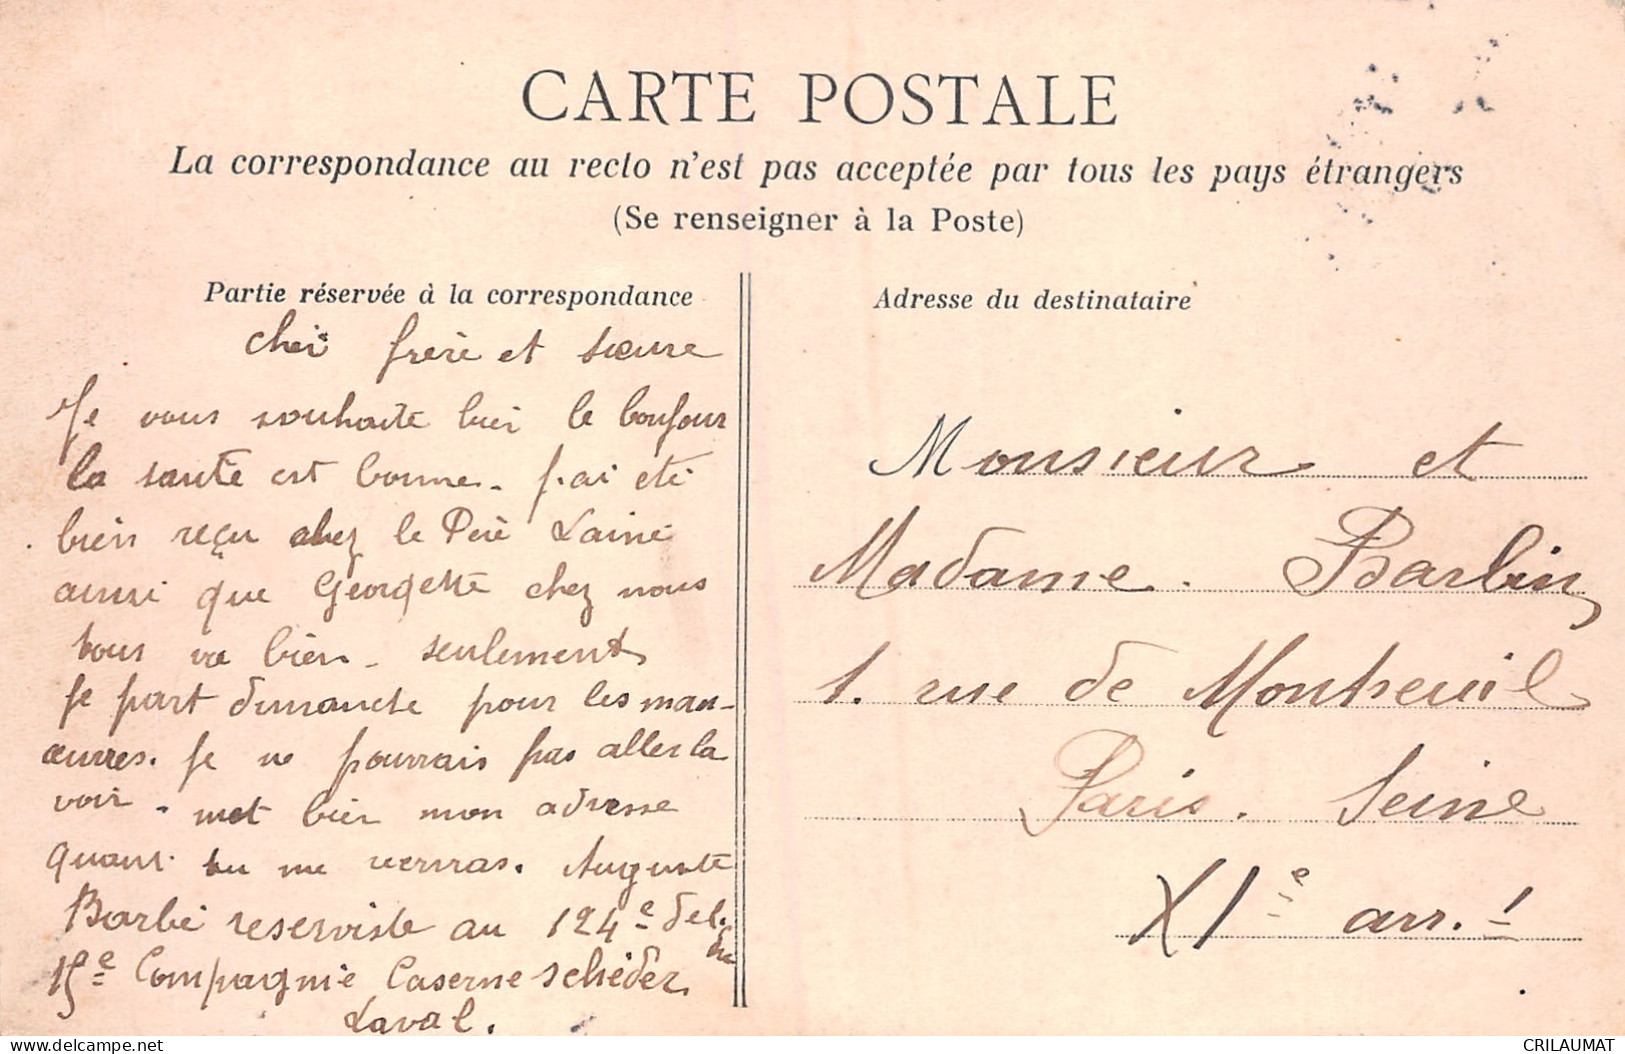 CARTE POSTALE
La correspondance au recto n'est pas acceptée par tous les pays étrangers
(Se renseigner à la Poste)
Partie réservée à la correspondance
cher frère et sœure
Je vous souhaite bien le bonjour
la santé est bonne. j.ai eté
bien reçu chez le Père Lainé
aussi que Georgette chez nous
tous va bien. seulement
je part dimanche pour les man-
œuvres. je ne pourrais pas aller la
voir. met bien mon adresse
quant tu me verras. Auguste
Barbé reserviste au 124e de l.
15e Compagnie Caserne schéder
Laval.
Adresse du destinataire
Monsieur et
Madame. Barbin
1. rue de Montreuil
Paris. Seine
XIe arr.!
delcampe.net
CRILAUMAT